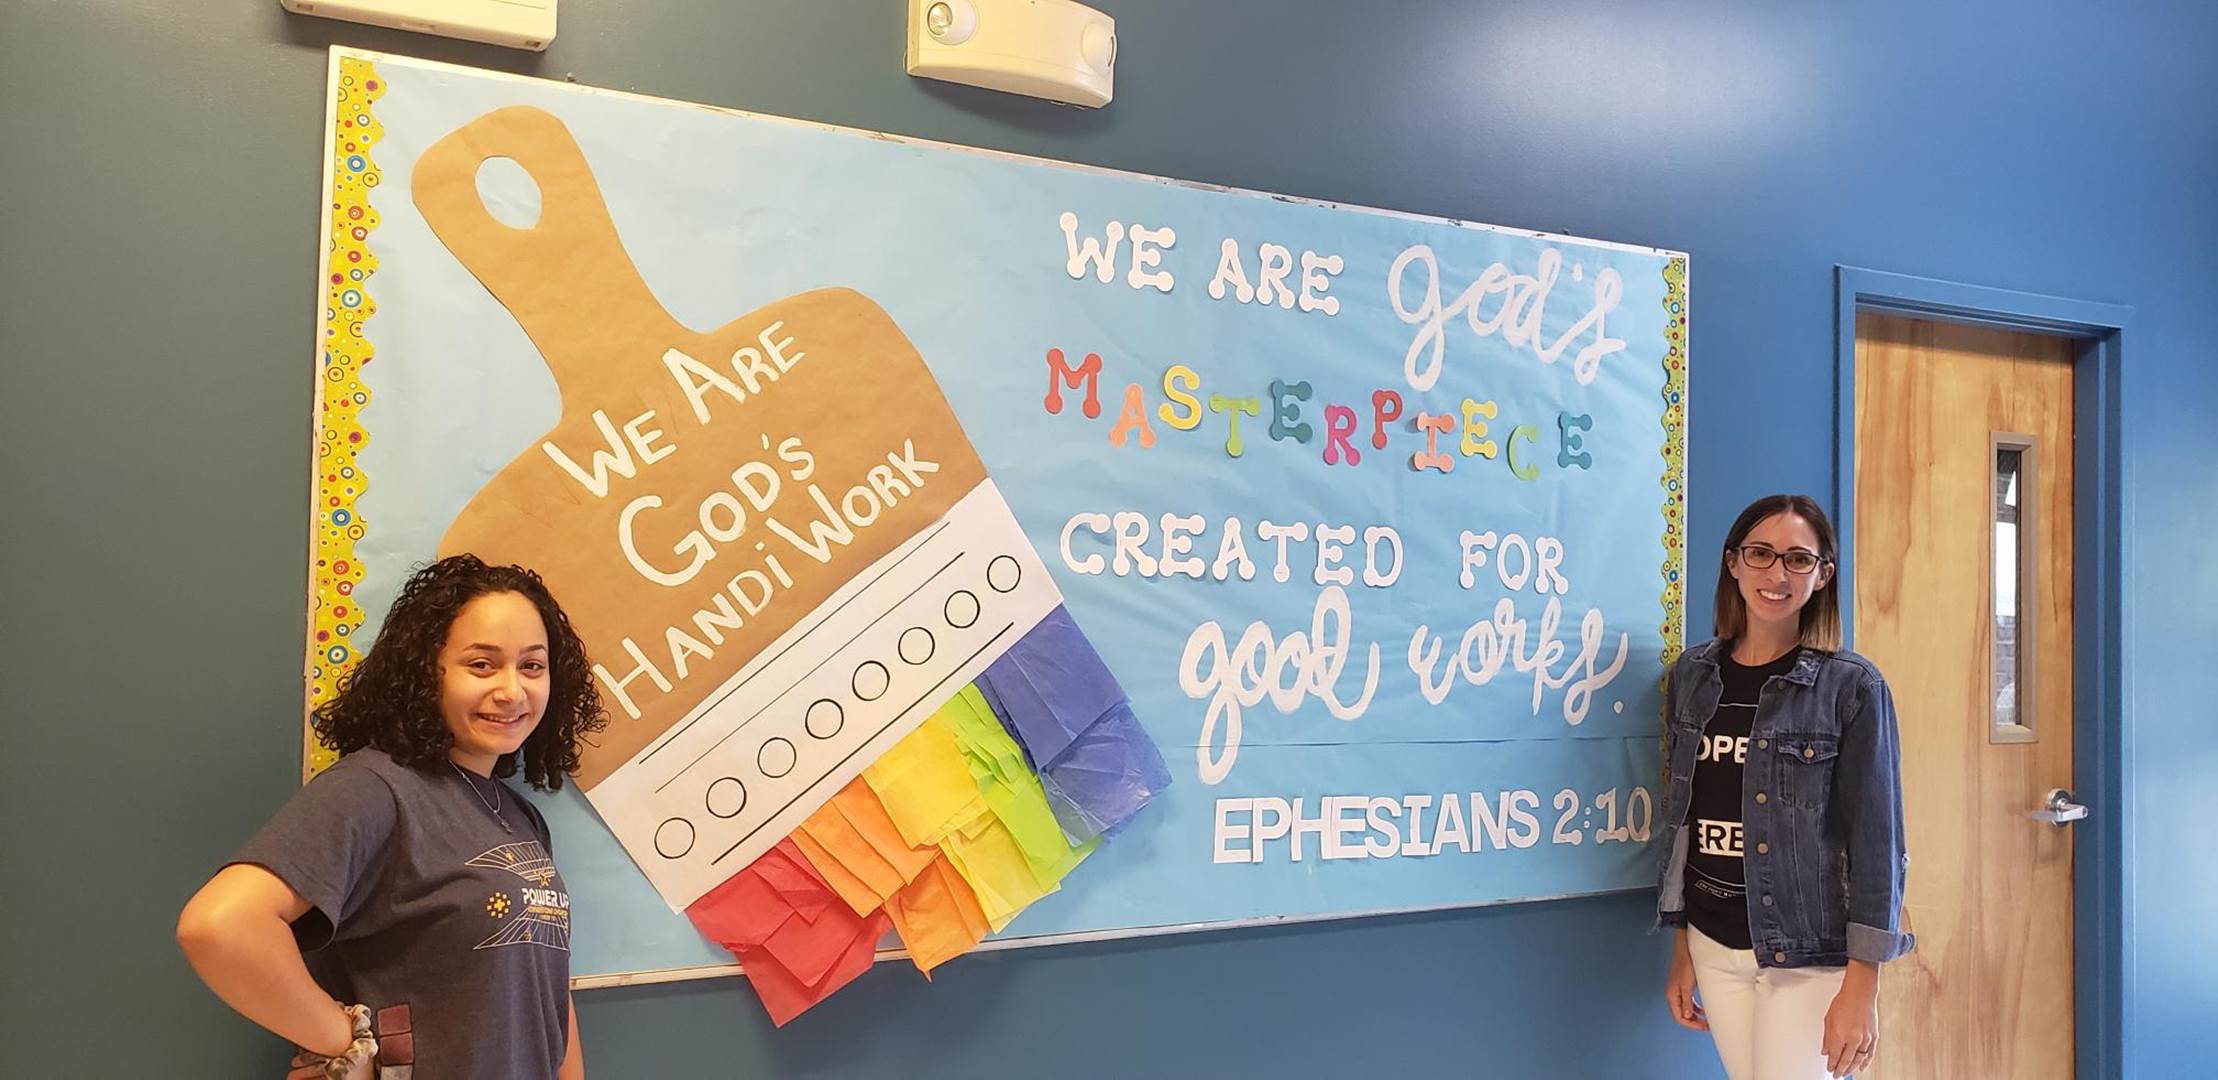 We Are
God's
HandiWork
WE ARE God's
MASTERPIECE
CREATED FOR
good works.
EPHESIANS 2:10
POWER UP